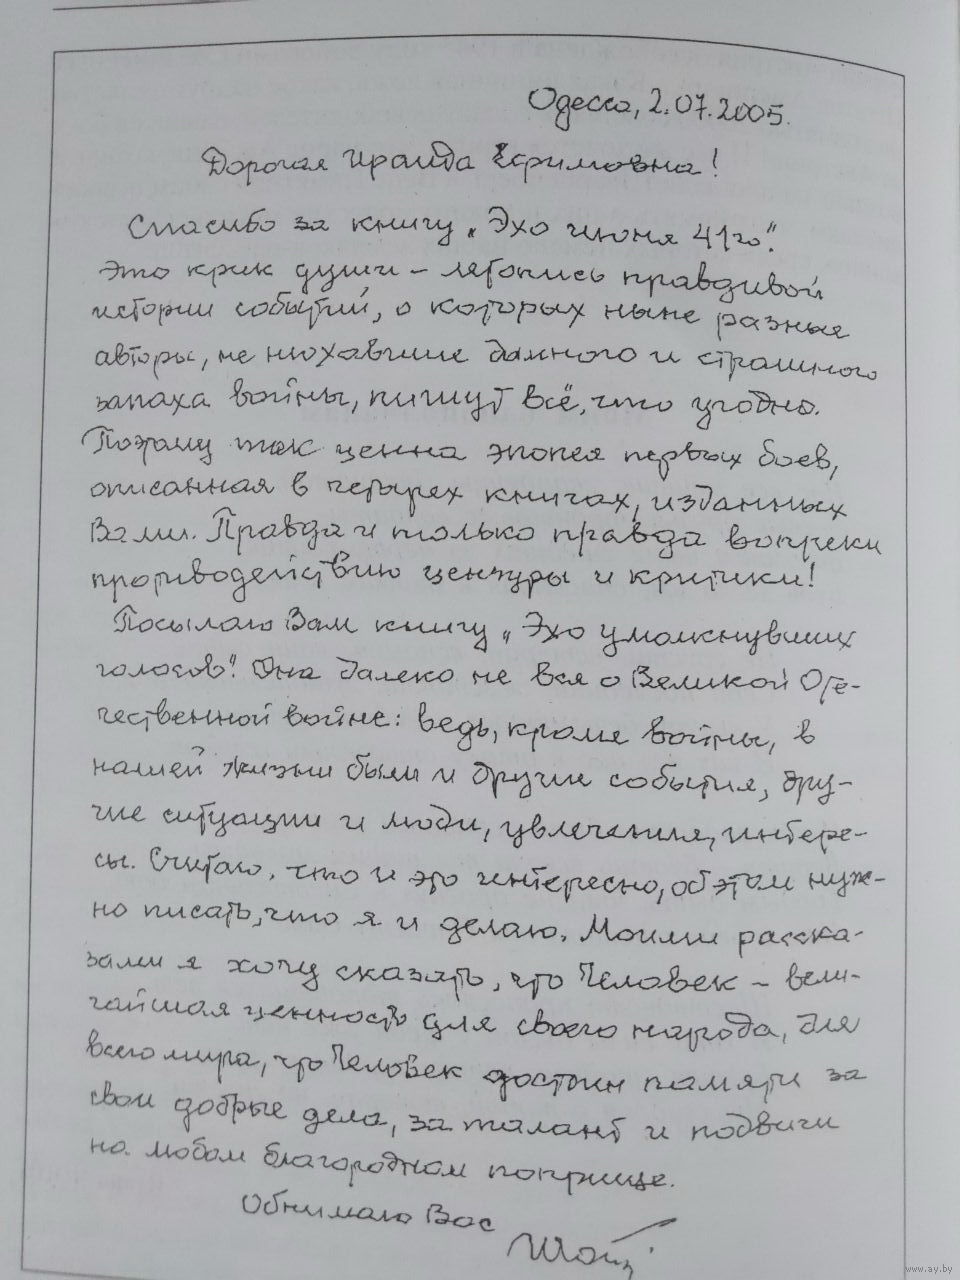 Одесса, 2.07.2005.
Дорогая Ираида Ефимовна!
Спасибо за книгу „Эхо июня 41го".
Это крик души – летопись правдивой
истории событий, о которых ныне разные
авторы, не нюхавшие дымного и страшного
запаха войны, пишут всё, что угодно.
Поэтому так ценна эпопея первых боев,
описанная в четырех книгах, изданных
Вами. Правда и только правда вопреки
противодействию цензуры и критики!
Посылаю Вам книгу „Эхо умолкнувших
голосов". Она далеко не вся о Великой Оте-
чественной войне: ведь, кроме войны, в
нашей жизни были и другие события, дру-
гие ситуации и люди, увлечения, интере-
сы. Считаю, что и это интересно, об этом нуж-
но писать, что я и делаю. Моими расска-
зами я хочу сказать, что Человек – вели-
чайшая ценность для своего народа, для
всего мира, что Человек достоин памяти за
свои добрые дела, за талант и подвиги
на любом благородном поприще.
Обнимаю Вас
www.ay.by